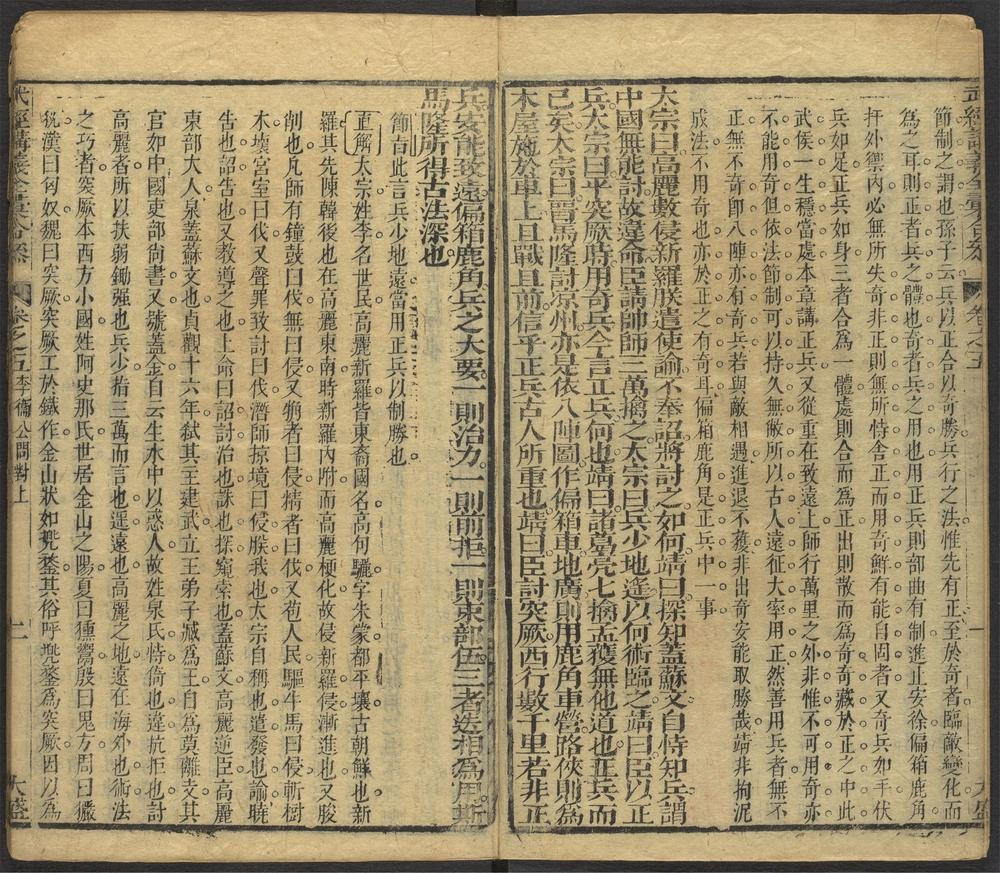 武經講義全彙合參 卷之五 一 大盛
節制之謂也孫子云兵以正合以奇勝兵行之法惟先有正至於奇者臨敵變化而
為之耳則正者兵之體也奇者兵之用也用正兵則部曲有制進止安徐偏箱鹿角
扞外禦內必無所失奇非正則無所恃舍正而用奇鮮有能自固者又奇兵如手伏
兵如足正兵如身三者合為一體處則合而爲正出則散而爲奇奇藏於正之中此
武侯一生穩當處本章講正兵又從重在致遠上師行萬里之外非惟不可用奇亦
不能用奇但依法節制可以持久無敝所以古人遠征大率用正然善用兵者無不
正無不奇即八陣亦有奇兵若與敵相遇進退不獲非出奇安能取勝哉靖非拘泥
成法不用奇也亦於正之有奇耳偏箱鹿角是正兵中一事
太宗曰高麗數侵新羅朕遣使諭不奉詔將討之如何靖曰探知蓋蘇文自恃知兵謂
中國無能討故違命臣請師師三萬擒之太宗曰兵少地遙以何術臨之靖曰臣以正
兵太宗曰平突厥時用奇兵今言正兵何也靖曰諸葛亮七擒孟獲無他道也正兵而
已矣太宗曰晋馬隆討凉州亦是依八陣圖作偏箱車地廣則用鹿角車營路俠則爲
木屋施於車上且戰且前信乎正兵古人所重也靖曰臣討突厥西行數千里若非正
兵安能致遠偏箱鹿角兵之大要一則治力一則前拒一則束部伍三者迭相爲用斯
馬隆所得古法深也
節旨此言兵少地遠當用正兵以制勝也
直解太宗姓李名世民高麗新羅皆東裔國名高句驪字朱蒙都平壤古朝鮮也新
羅其先陳韓後也在高麗東南時新羅內附而高麗梗化故侵新羅侵漸進也又朘
削也凡師有鐘鼓曰伐無曰侵又觕者曰侵精者曰伐又苞人民驅牛馬曰侵斬樹
木壞宮室曰伐又聲罪致討曰伐濳師掠境曰侵朕我也太宗自稱也遣發也諭曉
告也詔告也又教導之也上命曰詔討治也誅也探窺索也蓋蘇文高麗逆臣高麗
東部大人泉蓋蘇文也貞觀十六年弑其王建武立王弟子臧爲王自爲莫離支其
官如中國吏部尙書又號蓋金自云生水中以惑人故姓泉氏恃倚也違抗拒也討
高麗者所以扶弱鋤强也兵少指三萬而言也遥遠也高麗之地遠在海外也術法
之巧者突厥本西方小國姓阿史那氏世居金山之陽夏曰獯鬻殷曰鬼方周曰玁
狁漢曰匈奴魏曰突厥突厥工於鐵作金山狀如兠鍪其俗呼兠鍪爲突厥因以爲
武經講義全彙合參 卷之五 李衞公問對上 二 大盛